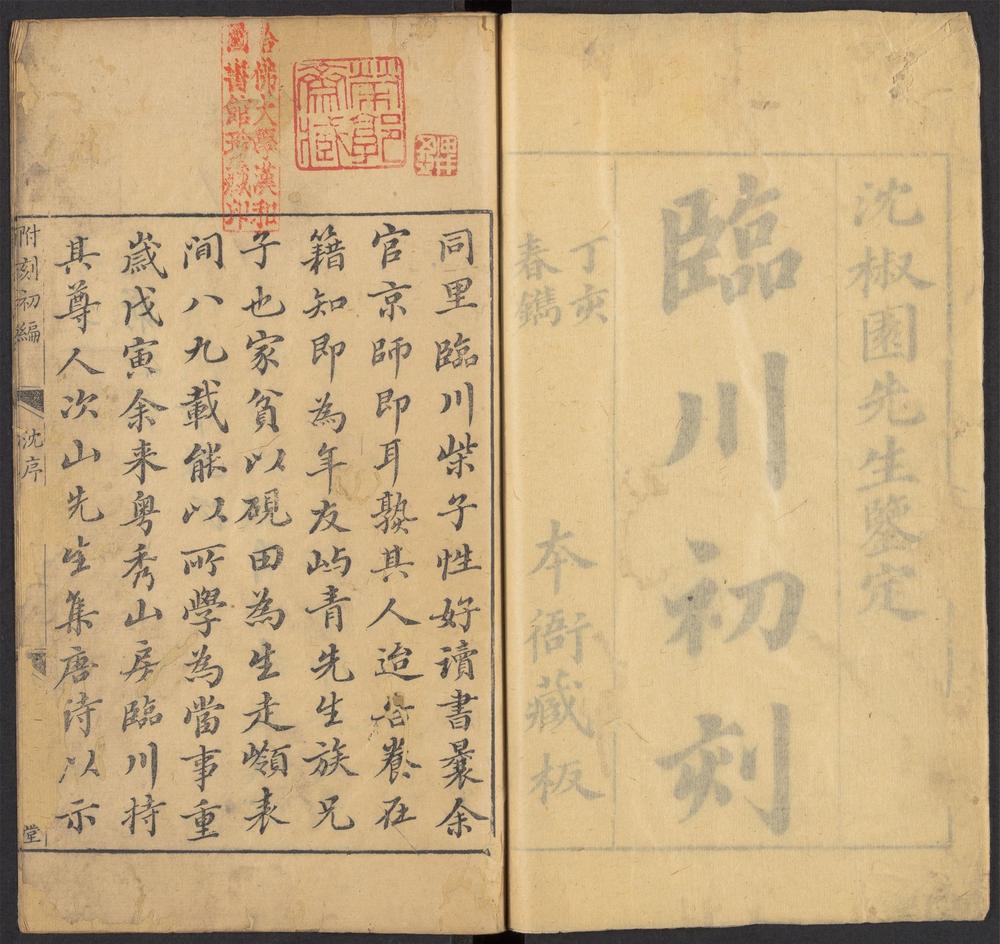 沈椒園先生鑒定
臨川初刻
丁亥
春鐫
本衙藏板
哈佛大學漢和
圖書館珍藏印
同里臨川柴子性好讀書曩余
官京師即耳熟其人迨告養在
籍知即為年友嶼青先生族兄
子也家貧以硯田為生走嶺表
間八九載能以所學為當事重
歲戊寅余来粤秀山房臨川持
其尊人次山先生集唐詩以示
附刻初編
沈序
堂